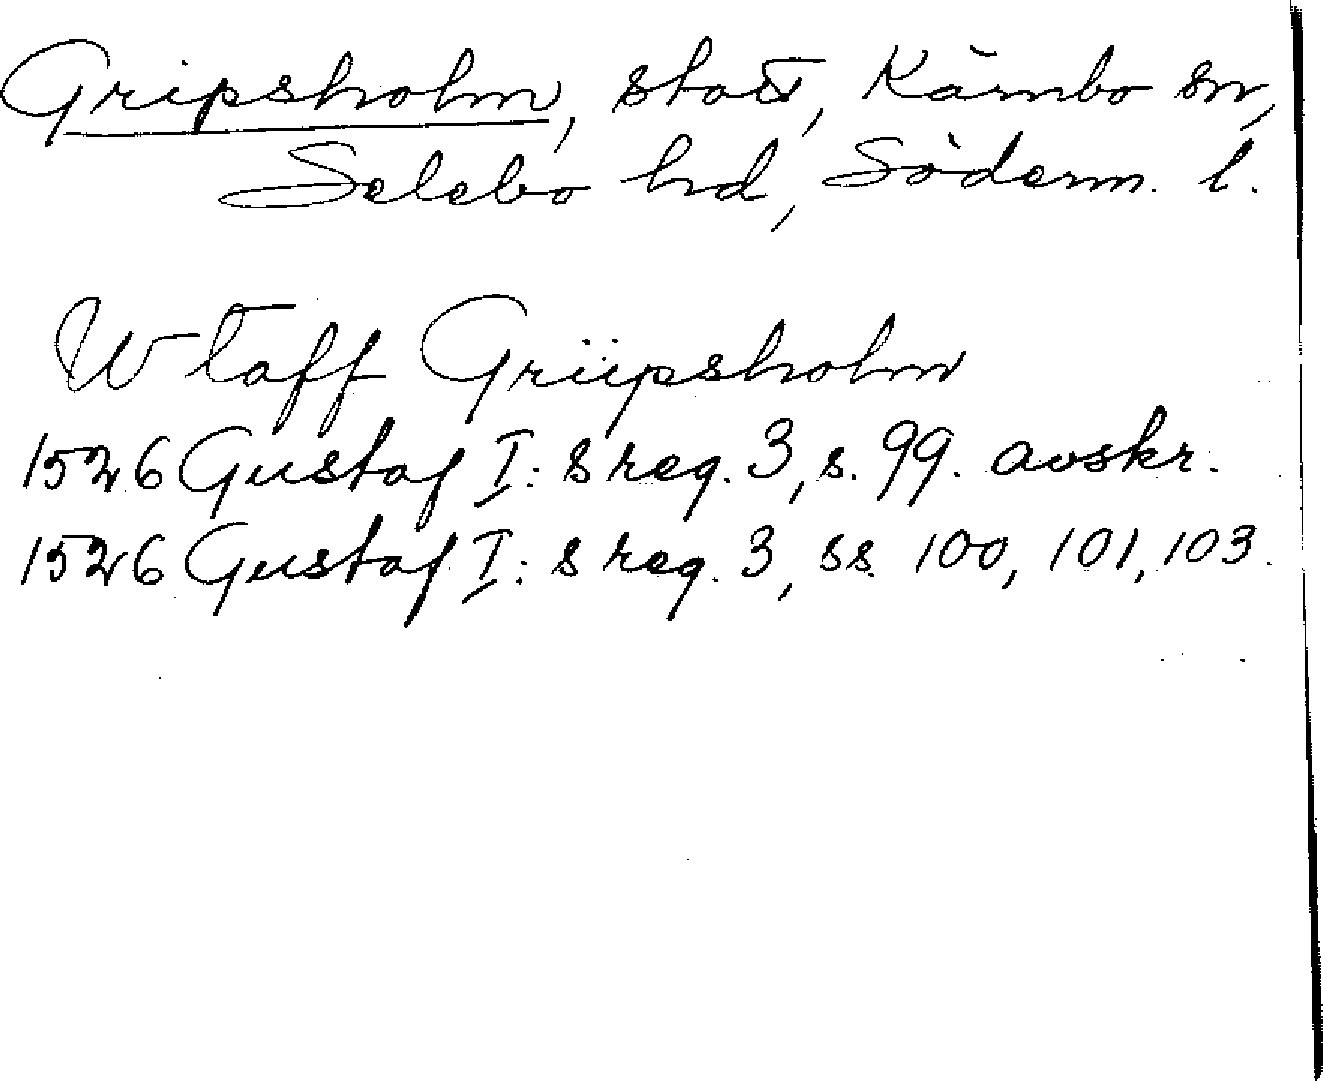 Gripsholm, slott, Kärnbo sn,
Selebo hd, Söderm. l.
Wtaff Griipsholm
1526 Gustaf I:s reg. 3, s. 99. avskr.
1526 Gustaf I:s reg. 3, ss. 100, 101, 103.